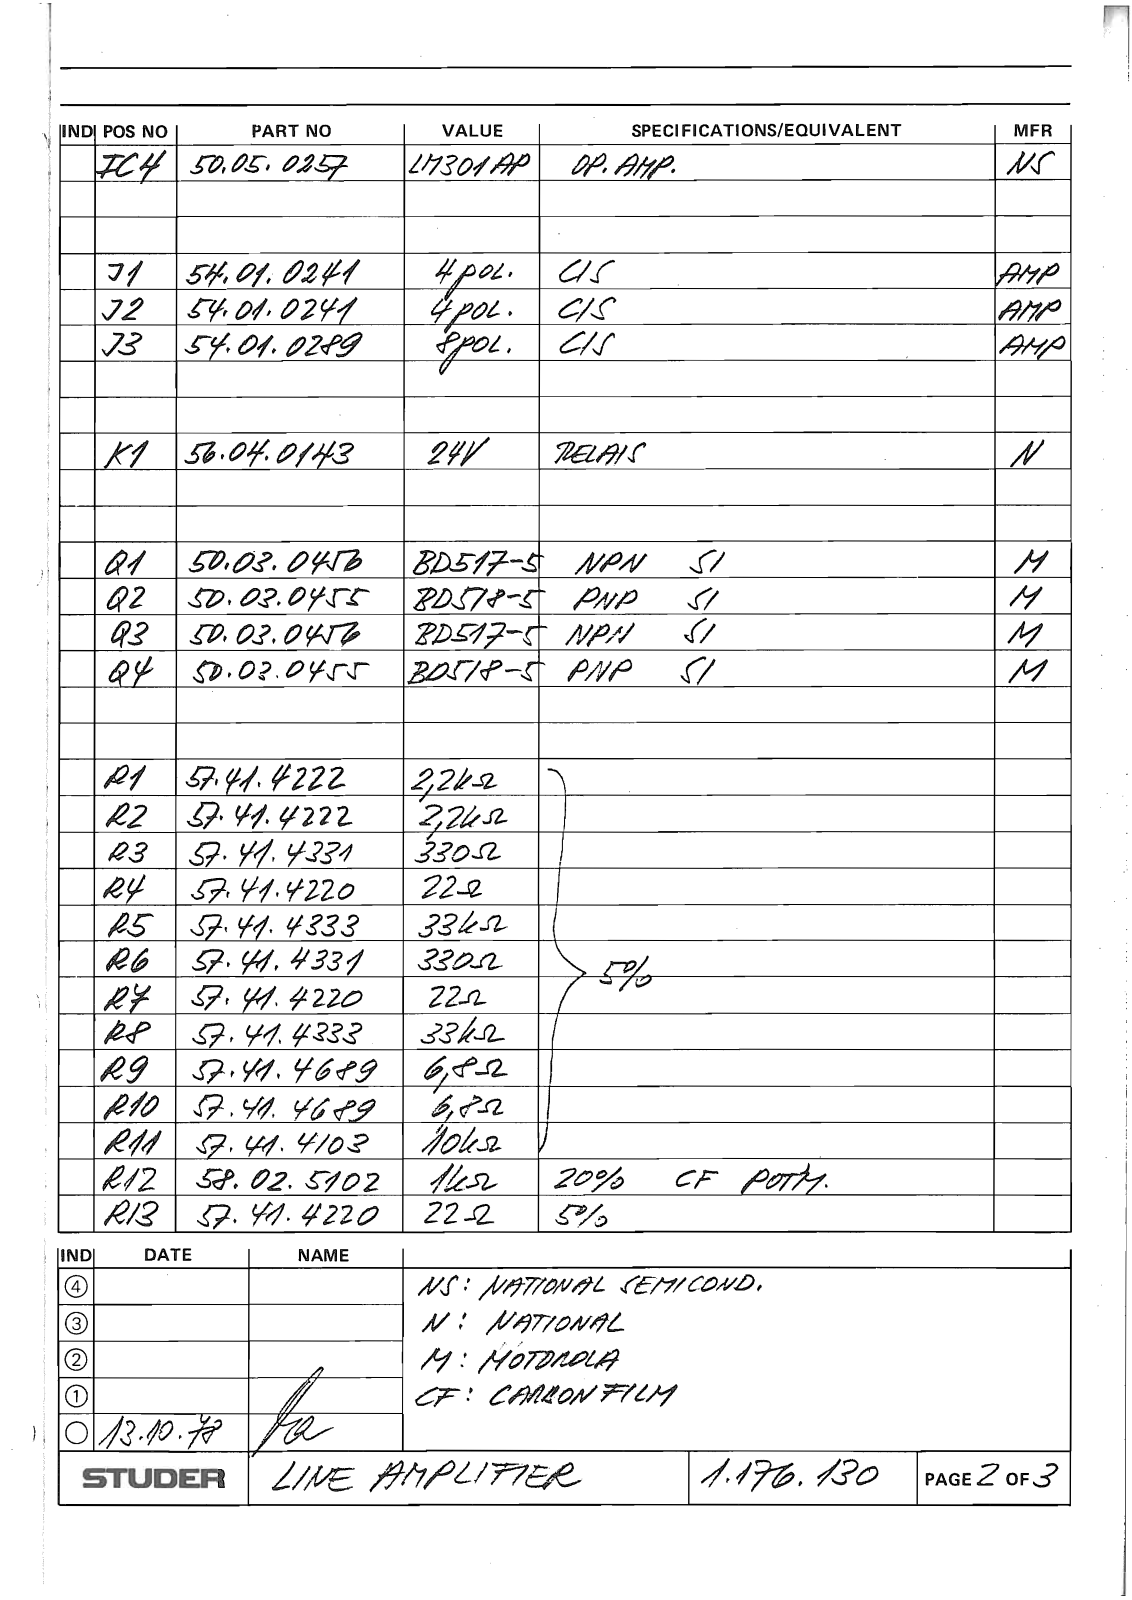 IND POS NO PART NO VALUE SPECIFICATIONS/EQUIVALENT MFR
IC4 50.05.0257 LM301AP OP. AMP. NS
J1 54.01.0241 4pol. CIS AMP
J2 54.01.0241 4pol. CIS AMP
J3 54.01.0289 8pol. CIS AMP
K1 56.04.0143 24V RELAIS N
Q1 50.03.0456 BD517-5 NPN SI M
Q2 50.03.0455 BD518-5 PNP SI M
Q3 50.03.0456 BD517-5 NPN SI M
Q4 50.03.0455 BD518-5 PNP SI M
R1 57.41.4222 2,2kΩ
R2 57.41.4222 2,2kΩ
R3 57.41.4331 330Ω
R4 57.41.4220 22Ω
R5 57.41.4333 33kΩ
R6 57.41.4331 330Ω 5%
R7 57.41.4220 22Ω
R8 57.41.4333 33kΩ
R9 57.41.4689 6,8Ω
R10 57.41.4689 6,8Ω
R11 57.41.4103 10kΩ
R12 58.02.5102 1kΩ 20% CF POTM.
R13 57.41.4220 22Ω 5%
IND DATE NAME
4 NS: NATIONAL SEMICOND.
3 N: NATIONAL
2 M: MOTOROLA
1 CF: CARBON FILM
13.10.78
STUDER LINE AMPLIFIER 1.176.130 PAGE 2 OF 3